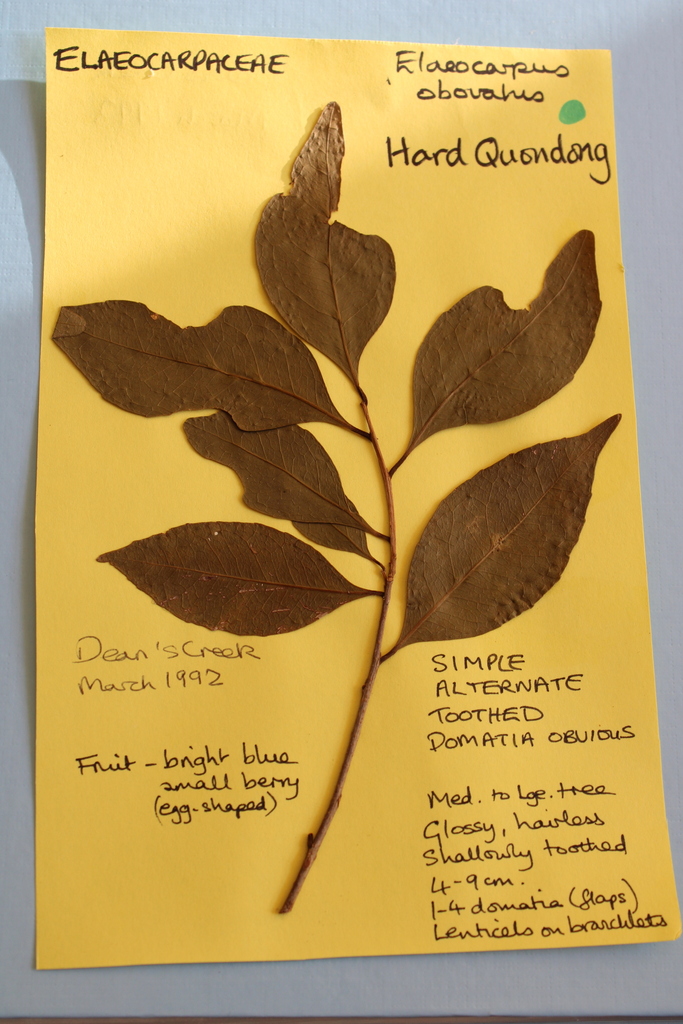 ELAEOCARPACEAE
Elaeocarpus
obovatus
Hard Quondong
Dean's Creek
March 1992
Fruit - bright blue
small berry
(egg-shaped)
SIMPLE
ALTERNATE
TOOTHED
DOMATIA OBVIOUS
Med. to lge. tree
Glossy, hairless
Shallowly toothed
4-9cm.
1-4 domatia (flaps)
Lenticels on branchlets